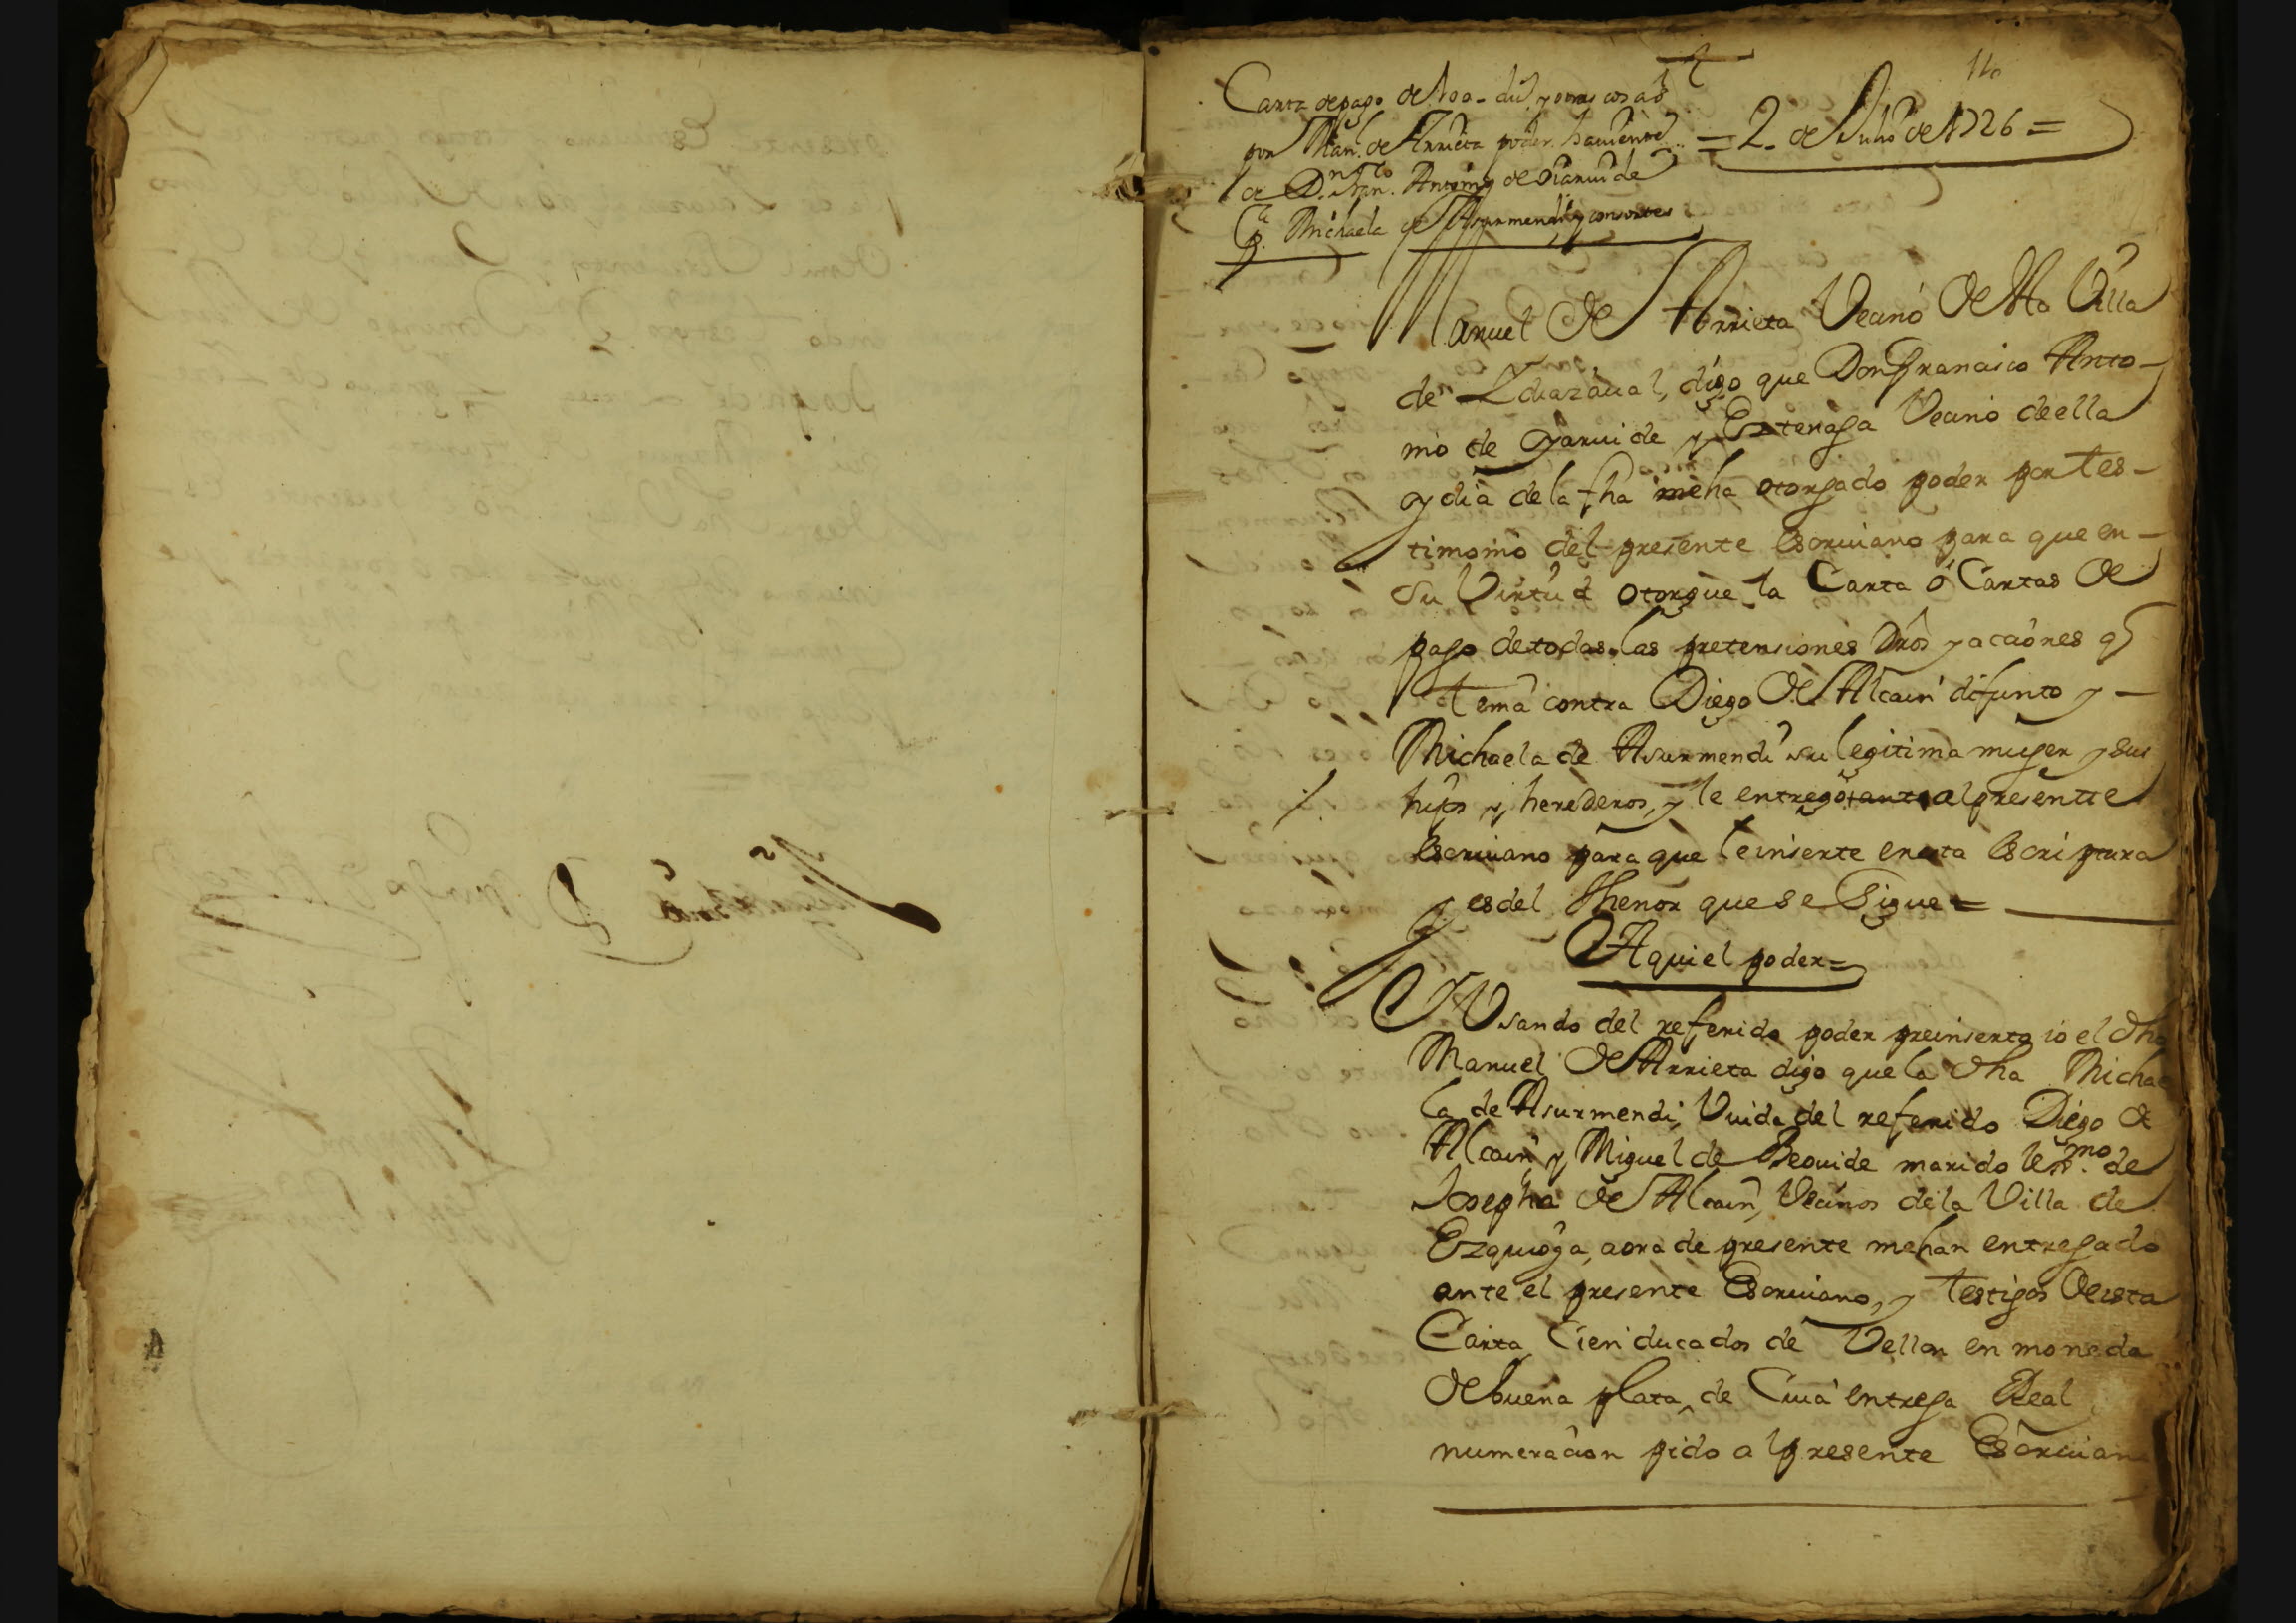 140
Carta de pago de 100 duº y otras cosas
por Man.l de Arrieta poder haviente
de D.n Fran.co Antonio de Oiarvide
Cª Michaela de Asurmendi y consortes
= 2. de Julio de 1726 =
Manuel de Arrieta Vecino de sta Villa
de Ydiazaval, digo que Don Francisco Anto-
nio de Oyarvide y Eztenaga Vecino de ella
oy dia de la fha me ha otorgado poder por tes-
timonio del presente Escrivano para que en
su Virtud otorgue la Carta ó Cartas de
pago de todas las pretensiones Dros y acciones q
tenia contra Diego de Alcain difunto y
Michaela de Asurmendi su legitima muger y sus
hijos y herederos, y le entregó al presente
Escrivano para que le inserte en esta Escriptura
y es del Thenor que se Sigue =
Aqui el poder =
Usando del referido poder preinserto io el dho
Manuel de Arrieta digo que la dha Michae
la de Asurmendi, Viuda del referido Diego de
Alcain, y Miguel de Beguide marido legmo. de
Josepha de Alcain, Vecinos de la Villa de
Ezquioga, aora de presente me han entregado
ante el presente Escrivano, y testigos de esta
Carta, Cien ducados de Vellon en moneda
de buena plata, de Cuia entrega Real
numeracion pido al presente Escrivan